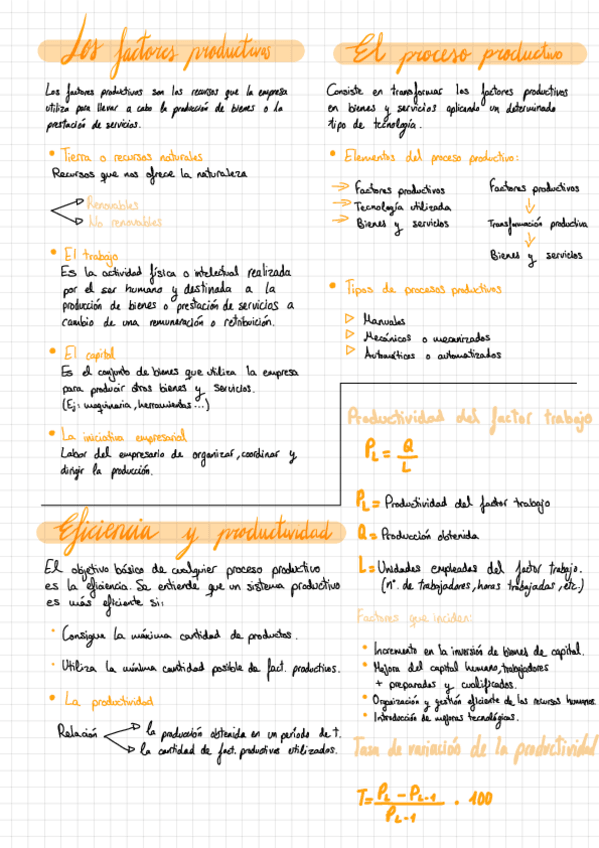 Los factores productivos
Los factores productivos son los recursos que la empresa
utiliza para llevar a cabo la producción de bienes o la
prestación de servicios.
• Tierra o recursos naturales
Recursos que nos ofrece la naturaleza
Renovables
No renovables
• El trabajo
Es la actividad física o intelectual realizada
por el ser humano y destinada a la
producción de bienes o prestación de servicios a
cambio de una remuneración o retribución.
• El capital
Es el conjunto de bienes que utiliza la empresa
para producir otros bienes y servicios.
(Ej: maquinaria, herramientas...)
• La iniciativa empresarial
Labor del empresario de organizar, coordinar y
dirigir la producción.
Eficiencia y productividad
El objetivo básico de cualquier proceso productivo
es la eficiencia. Se entiende que un sistema productivo
es más eficiente si:
· Consigue la máxima cantidad de productos.
· Utiliza la mínima cantidad posible de fact. productivos.
• La productividad
Relación
la producción obtenida en un período de t.
la cantidad de fact. productivos utilizados.
El proceso productivo
Consiste en transformar los factores productivos
en bienes y servicios aplicando un determinado
tipo de tecnología.
• Elementos del proceso productivo:
→ Factores productivos
→ Tecnología utilizada
→ Bienes y servicios
Factores productivos
↓
Transformación productiva
↓
Bienes y servicios
• Tipos de procesos productivos
▷ Manuales
▷ Mecánicos o mecanizados
▷ Automáticos o automatizados
Productividad del factor trabajo
PL = Q / L
PL = Productividad del factor trabajo
Q = Producción obtenida
L = Unidades empleadas del factor trabajo.
(nº. de trabajadores, horas trabajadas, etc.)
Factores que inciden:
• Incremento en la inversión de bienes de capital.
• Mejora del capital humano, trabajadores
+ preparados y cualificados.
• Organización y gestión eficiente de los recursos humanos.
• Introducción de mejoras tecnológicas.
Tasa de variación de la productividad
T = PL - PL-1 / PL-1 . 100